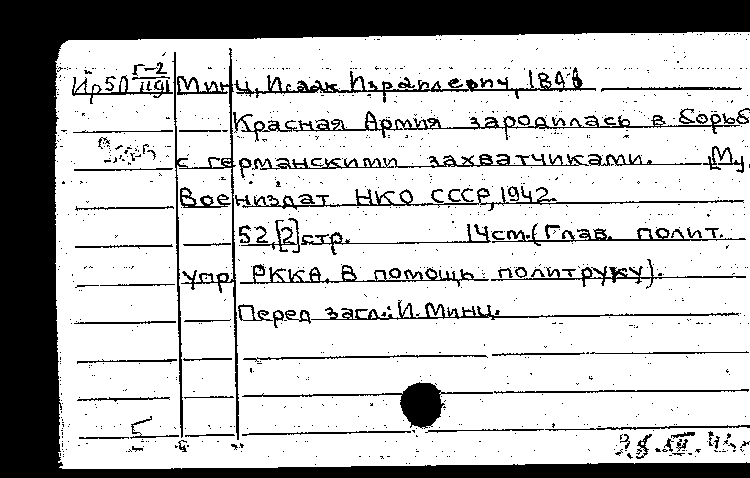 Ир50 Г-2 Минц, Исаак Израилевич, 1896
1191
Красная Армия зародилась в борьб
с германскими захватчиками. [М.,
Воениздат НКО СССР, 1942.
52,[2]стр. 14см.(Глав. полит.
упр. РККА. В помощь политруку).
Перед загл.: И. Минц.